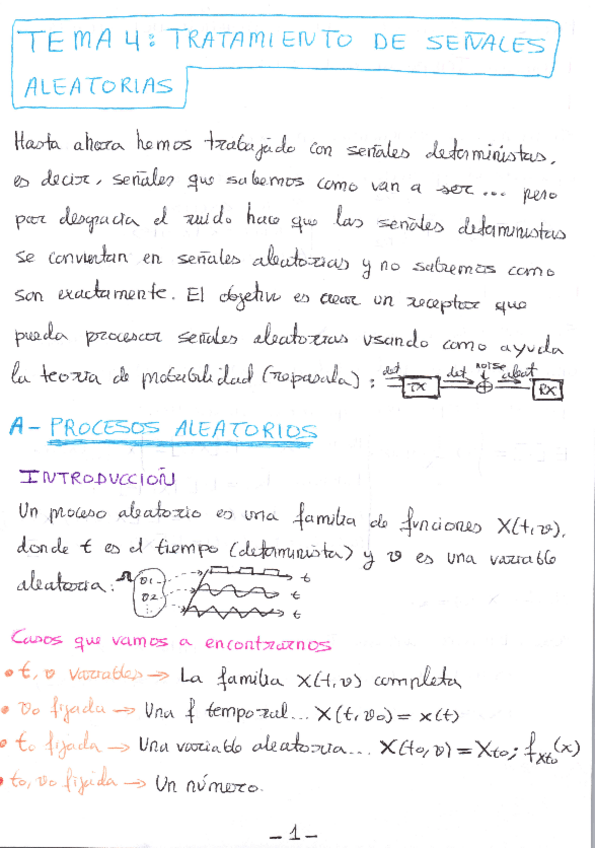 TEMA 4: TRATAMIENTO DE SEÑALES
ALEATORIAS
Hasta ahora hemos trabajado con señales deterministas,
es decir, señales que sabemos como van a ser... pero
por desgracia el ruido hace que las señales deterministas
se conviertan en señales aleatorias y no sabremos como
son exactamente. El objetivo es crear un receptor que
pueda procesar señales aleatorias usando como ayuda
la teoría de probabilidad (repasala): det TX det noise aleat RX
A- PROCESOS ALEATORIOS
INTRODUCCIÓN
Un proceso aleatorio es una familia de funciones X(t,v),
donde t es el tiempo (determinista) y v es una variable
aleatoria: Ω v1 v2 t t t
Casos que vamos a encontrarnos
• t, v variables → La familia X(t,v) completa
• v0 fijada → Una f temporal... X(t,v0) = x(t)
• t0 fijada → Una variable aleatoria... X(t0,v) = Xt0; fXt0(x)
• t0, v0 fijada → Un número.
- 1 -